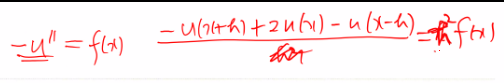 -u'' = f(x)   -u(x+h)+2u(x)-u(x-h) = h²f(x)